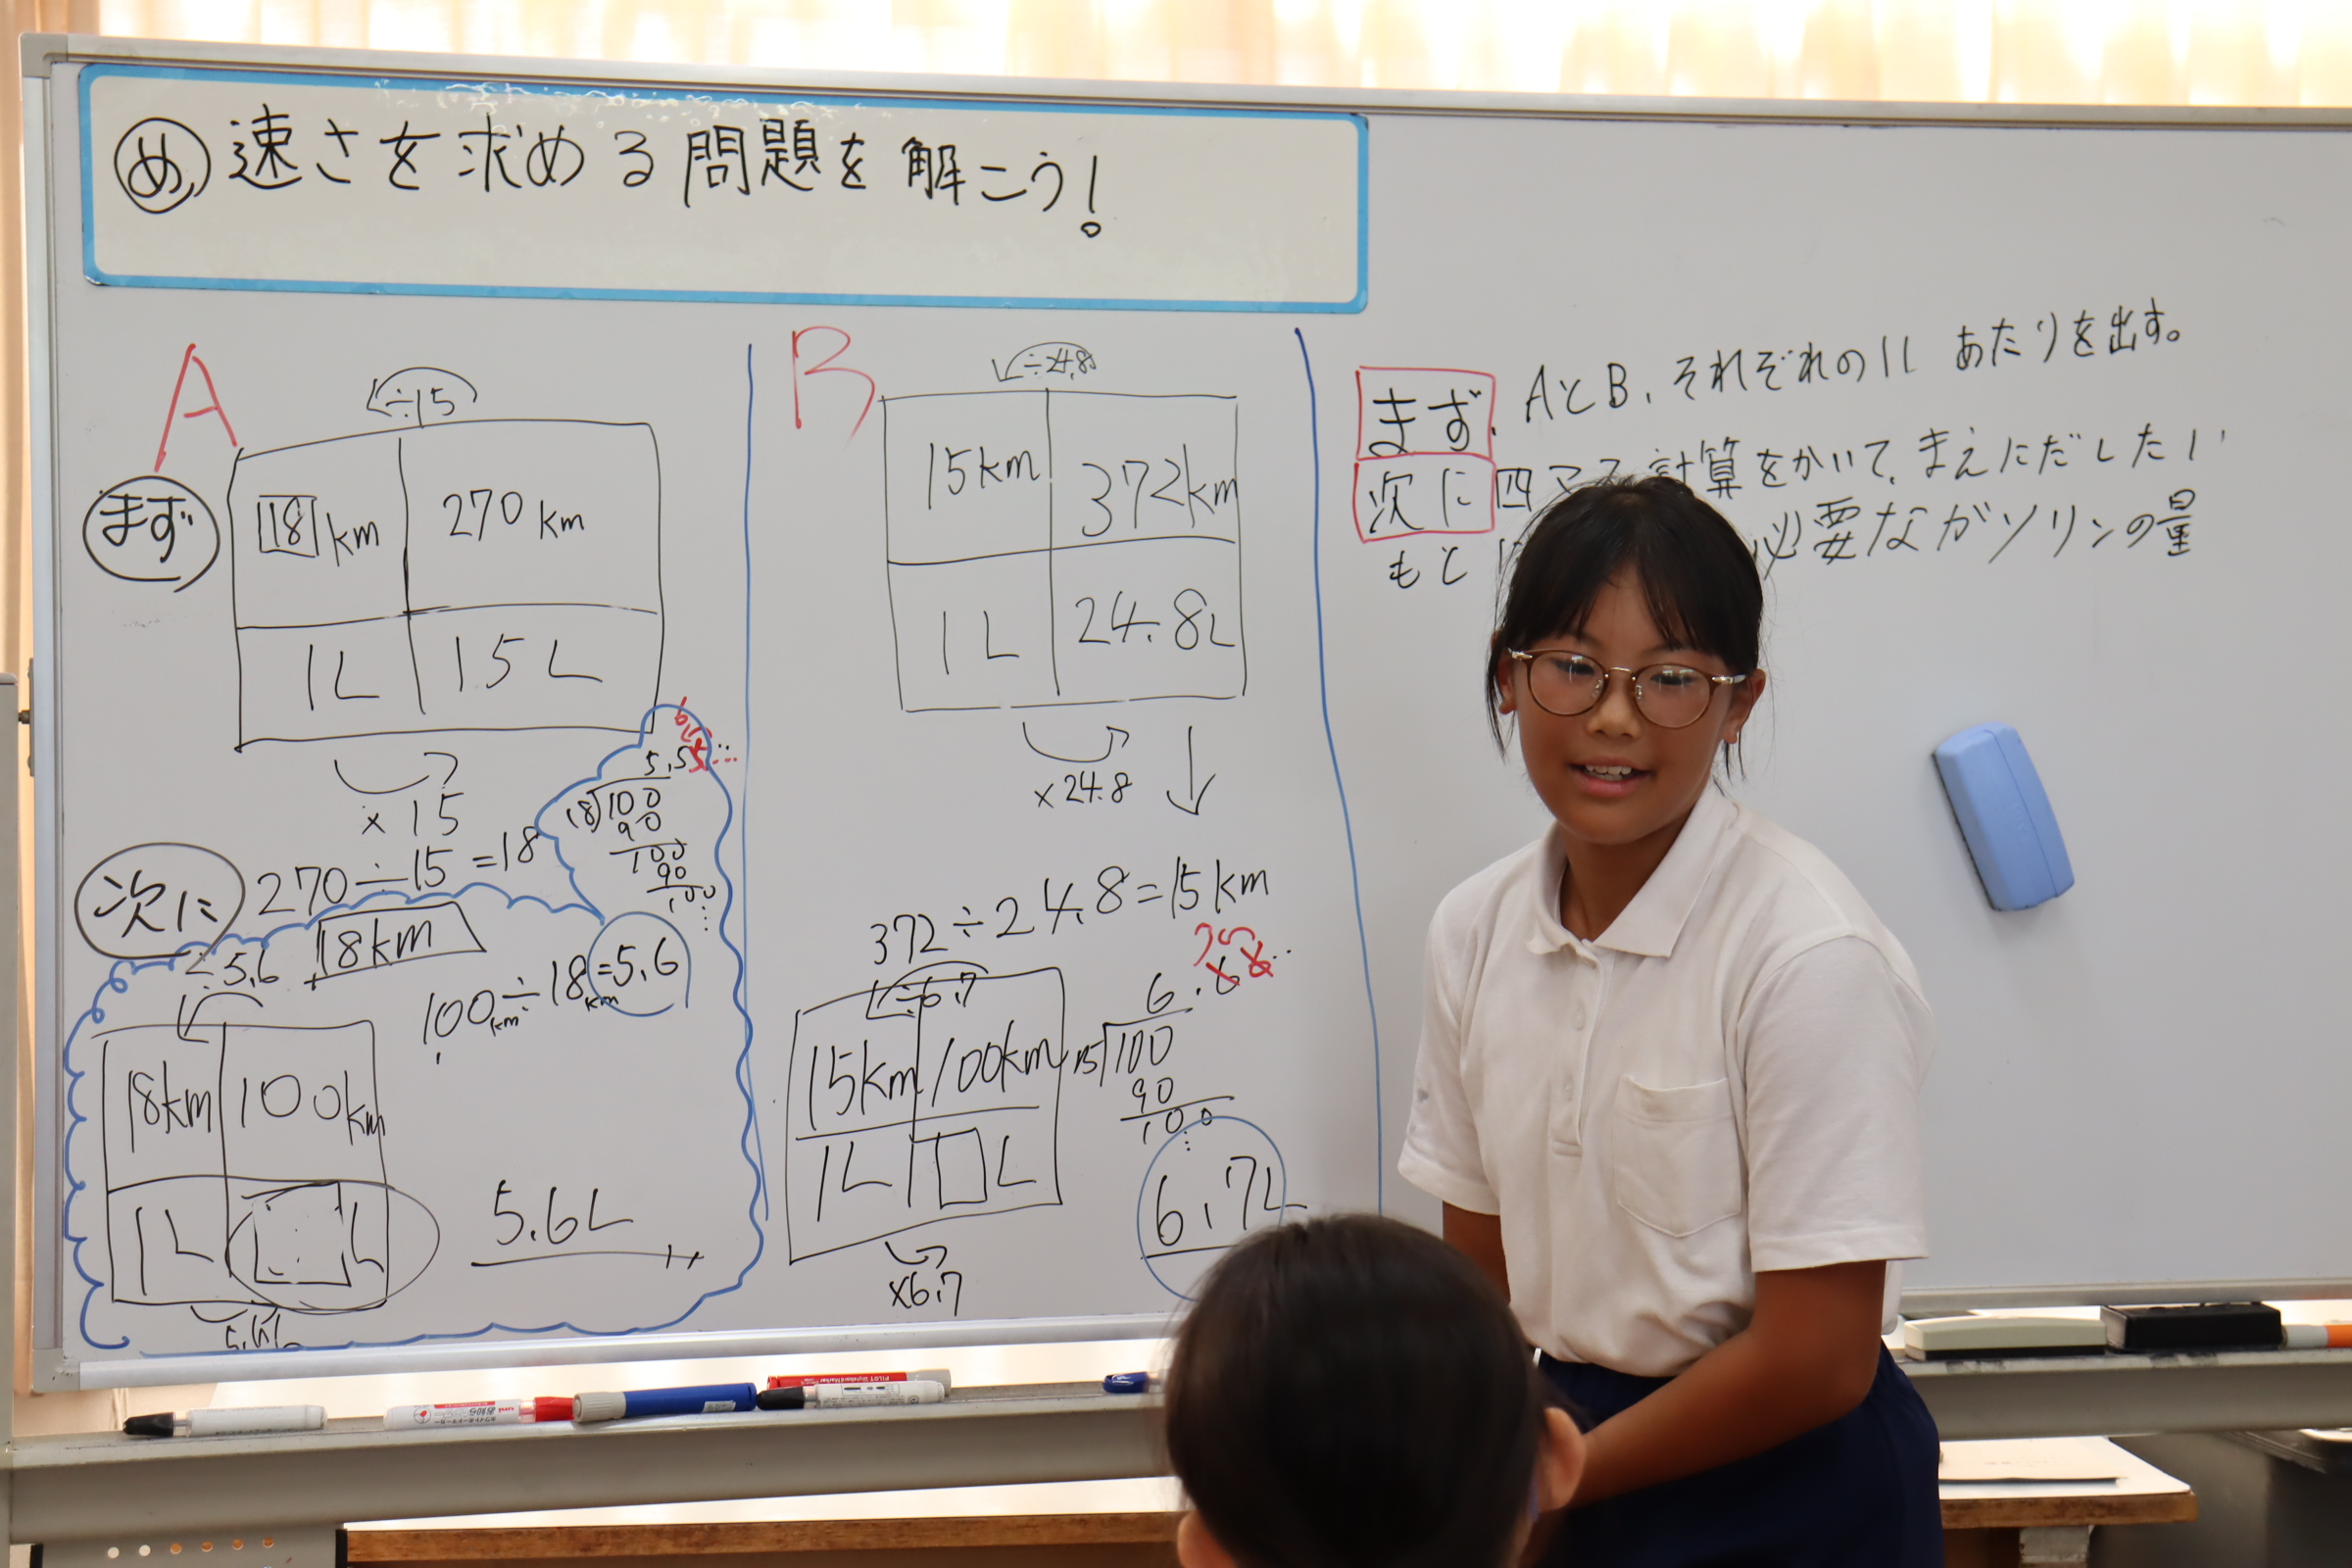 め 速さを求める問題を解こう!
A
÷15
まず
18 km 270 km
1L 15L
× 15
270÷15=18
18km
次に
5.5
18 100
90
100
90
100
÷5.6
100km÷18km=5.6
18km 100km
1L □L
5.6L
B
÷24.8
15km 372km
1L 24.8L
×24.8
372÷24.8=15km
÷6.7
15km 100km
1L □L
×6.7
6.66
15 100
90
100
6.7L
まず、AとB、それぞれの1Lあたりを出す。
次に四マス計算をかいて、まえにだした1
もとに 必要なガソリンの量
PILOT
uni